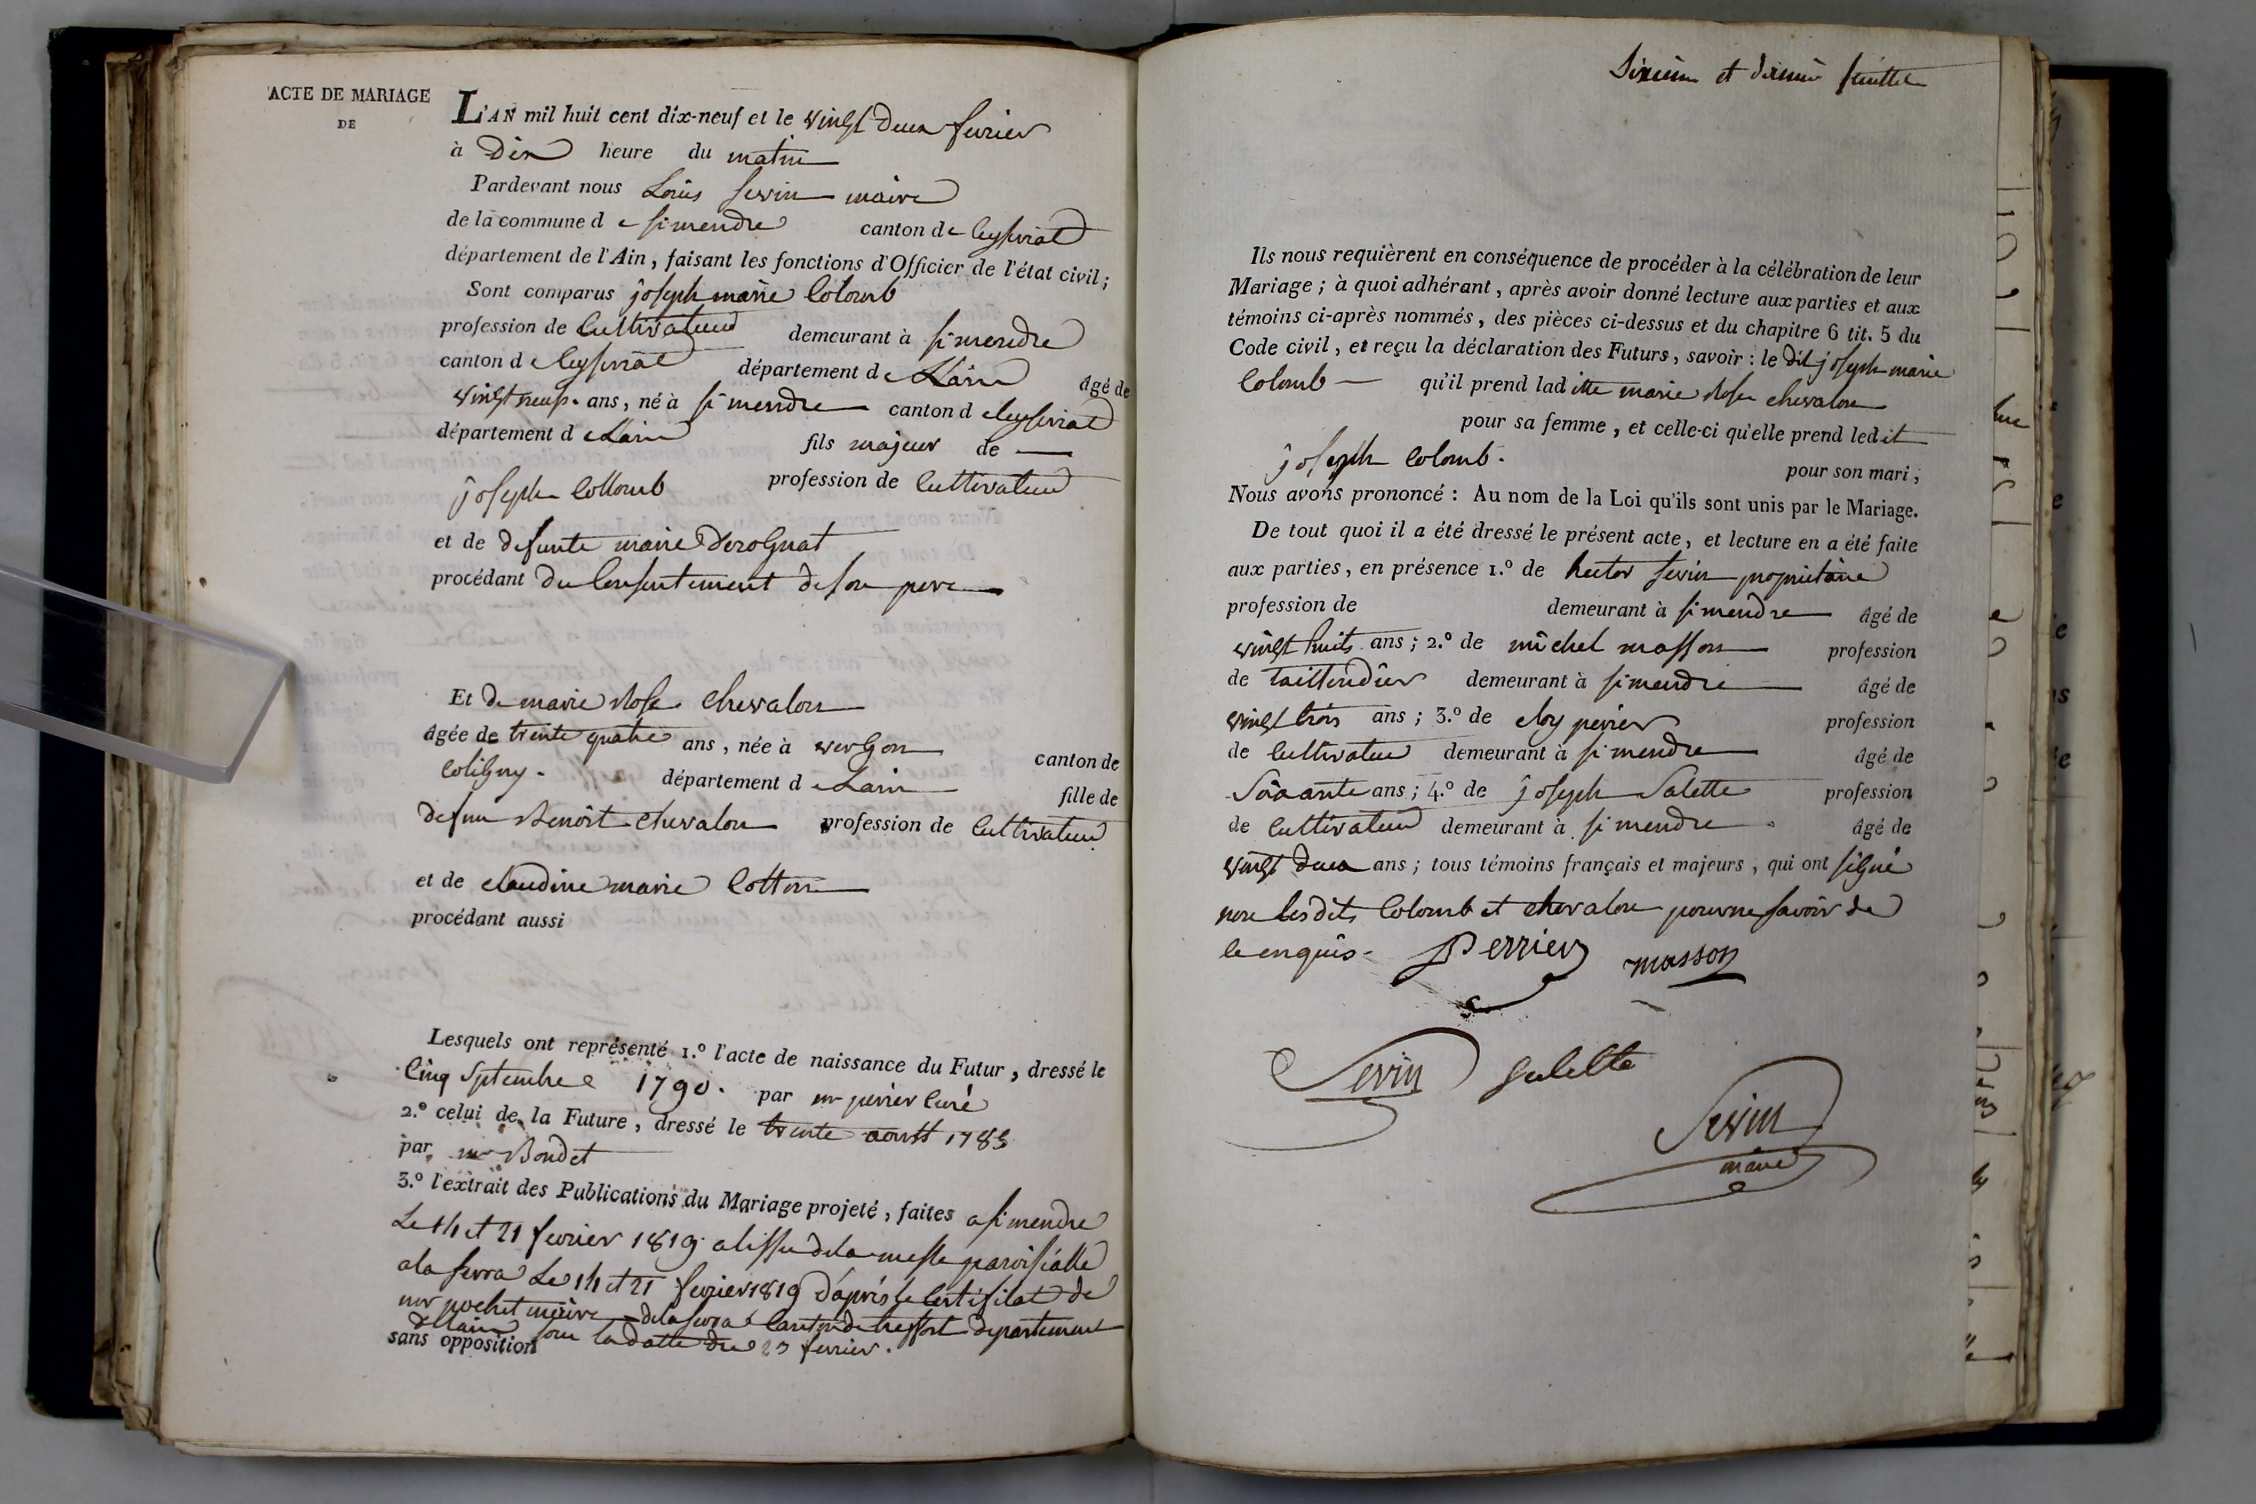 ACTE DE MARIAGE
DE
L'AN mil huit cent dix-neuf et le vingt deux fevrier
à Dix heure du matin
Pardevant nous Louis sevin maire
de la commune de simendre canton de ceyseriat
département de l'Ain, faisant les fonctions d'Officier de l'état civil;
Sont comparus joseph marie Colomb
profession de Cultivateur demeurant à simendre
canton de Ceyseriat département de L'ain âgé de
vingt neuf ans, né à simendre canton de ceyseriat
département de L'ain fils majeur de
joseph Collomb profession de Cultivateur
et de defunte marie Derognat
procédant du Consentement de son pere
Et de marie Rose Chevalon
âgée de trente quatre ans, née à vergon canton de
Coligny. département de Lain fille de
defun Benoit chevalon profession de Cultivateur
et de claudine marie Cotton
procédant aussi
Lesquels ont représenté 1.º l'acte de naissance du Futur, dressé le
Cinq Septembre 1790. par mr perier Curé
2.º celui de la Future, dressé le trente aoust 1785
par mr Bondet
3.º l'extrait des Publications du Mariage projeté, faites a simendre
Le 14 et 21 fevrier 1819 a lissu de la messe paroisialle
a la serra Le 14 et 21 fevrier 1819 d'aprés le Certifilat de
mr pochet maire de la serra Canton de treffort departement
de Lain sou la datte du 23 fevrier.
sans opposition
Sixieme et dernier feuillet
Ils nous requièrent en conséquence de procéder à la célébration de leur
Mariage; à quoi adhérant, après avoir donné lecture aux parties et aux
témoins ci-après nommés, des pièces ci-dessus et du chapitre 6 tit. 5 du
Code civil, et reçu la déclaration des Futurs, savoir: le dit joseph marie
Colomb qu'il prend laditte marie Rose chevalon
pour sa femme, et celle-ci qu'elle prend ledit
joseph Colomb. pour son mari;
Nous avons prononcé: Au nom de la Loi qu'ils sont unis par le Mariage.
De tout quoi il a été dressé le présent acte, et lecture en a été faite
aux parties, en présence 1.º de hector sevin propriétaire
profession de demeurant à simendre âgé de
vingt huit ans; 2.º de michel masson profession
de taillendier demeurant à simendre âgé de
vingt trois ans; 3.º de eloy perier profession
de Cultivateur demeurant à simendre âgé de
Soixante ans; 4.º de joseph Salette profession
de Cultivateur demeurant à simendre âgé de
vingt deux ans; tous témoins français et majeurs, qui ont signé
non lesdits Colomb et chevalon pour ne savoir de
le enquis. Perrier masson
Sevin Salette
Sevin
maire